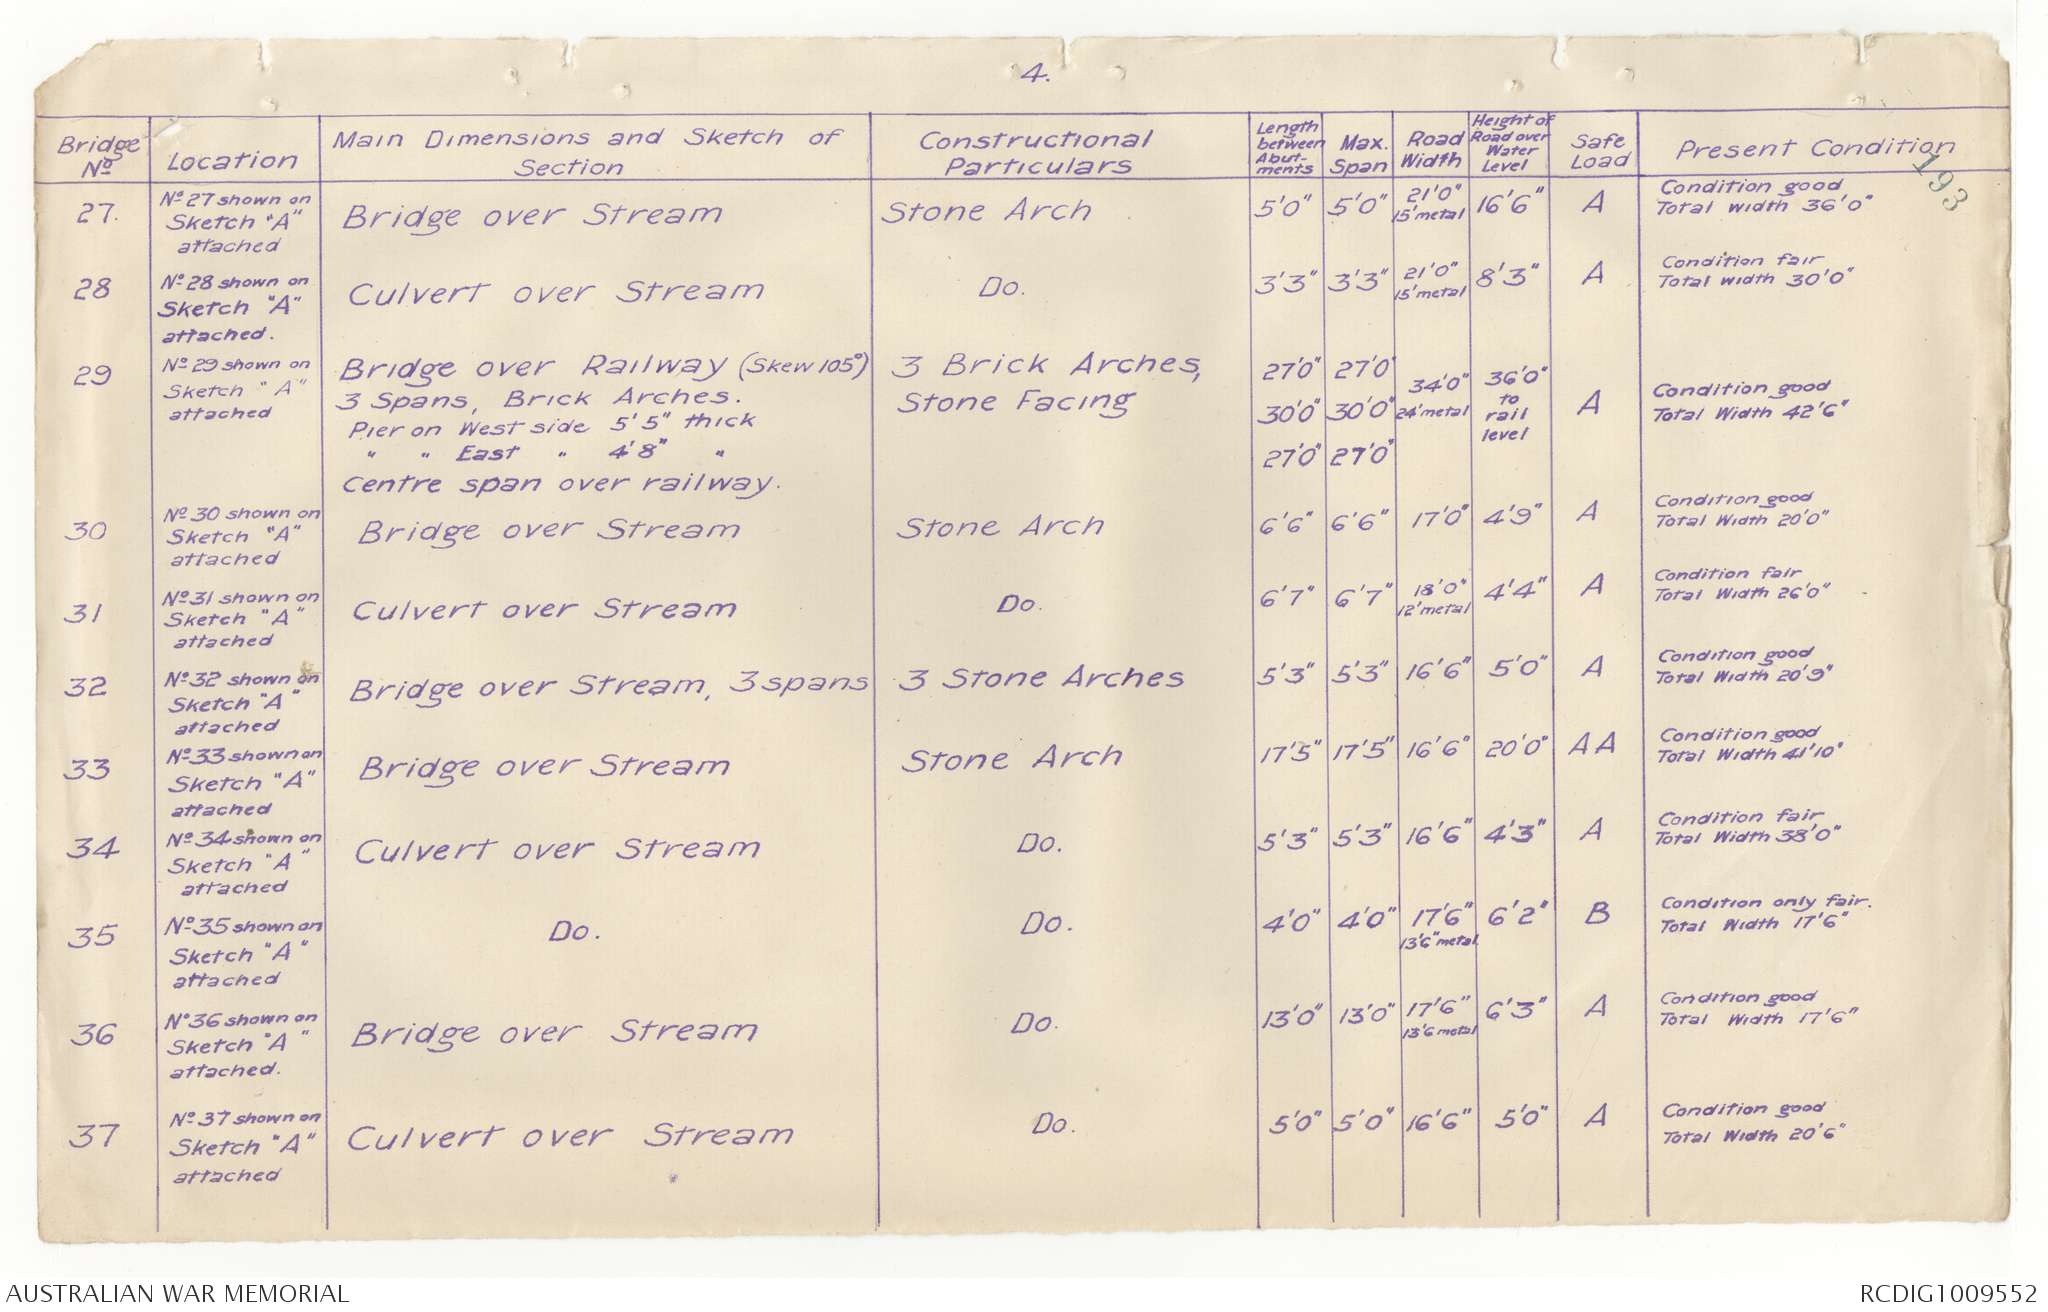 4.
193
Bridge Nº | Location | Main Dimensions and Sketch of Section | Constructional Particulars | Length between Abut-ments | Max. Span | Road Width | Height of Road over Water Level | Safe Load | Present Condition
27. | Nº 27 shown on Sketch "A" attached | Bridge over Stream | Stone Arch | 5'0" | 5'0" | 21'0" 15' metal | 16'6" | A | Condition good Total width 36'0"
28 | Nº 28 shown on Sketch "A" attached. | Culvert over Stream | Do. | 3'3" | 3'3" | 21'0" 15' metal | 8'3" | A | Condition fair Total width 30'0"
29 | Nº 29 shown on Sketch "A" attached | Bridge over Railway (Skew 105°)
3 Spans, Brick Arches.
Pier on West side 5'5" thick
" " East " 4'8" "
Centre span over railway. | 3 Brick Arches, Stone Facing | 27'0" 30'0" 27'0" | 27'0" 30'0" 27'0" | 34'0" 24' metal | 36'0" to rail level | A | Condition good Total Width 42'6"
30 | Nº 30 shown on Sketch "A" attached | Bridge over Stream | Stone Arch | 6'6" | 6'6" | 17'0" | 4'9" | A | Condition good Total Width 20'0"
31 | Nº 31 shown on Sketch "A" attached | Culvert over Stream | Do. | 6'7" | 6'7" | 18'0" 12' metal | 4'4" | A | Condition fair Total Width 26'0"
32 | Nº 32 shown on Sketch "A" attached | Bridge over Stream, 3 spans | 3 Stone Arches | 5'3" | 5'3" | 16'6" | 5'0" | A | Condition good Total Width 20'9"
33 | Nº 33 shown on Sketch "A" attached | Bridge over Stream | Stone Arch | 17'5" | 17'5" | 16'6" | 20'0" | AA | Condition good Total Width 41'10"
34 | Nº 34 shown on Sketch "A" attached | Culvert over Stream | Do. | 5'3" | 5'3" | 16'6" | 4'3" | A | Condition fair Total Width 38'0"
35 | Nº 35 shown on Sketch "A" attached | Do. | Do. | 4'0" | 4'0" | 17'6" 13'6" metal | 6'2" | B | Condition only fair. Total Width 17'6"
36 | Nº 36 shown on Sketch "A" attached. | Bridge over Stream | Do. | 13'0" | 13'0" | 17'6" 13'6 metal | 6'3" | A | Condition good Total Width 17'6"
37 | Nº 37 shown on Sketch "A" attached | Culvert over Stream | Do. | 5'0" | 5'0" | 16'6" | 5'0" | A | Condition good Total Width 20'6"
AUSTRALIAN WAR MEMORIAL
RCDIG1009552